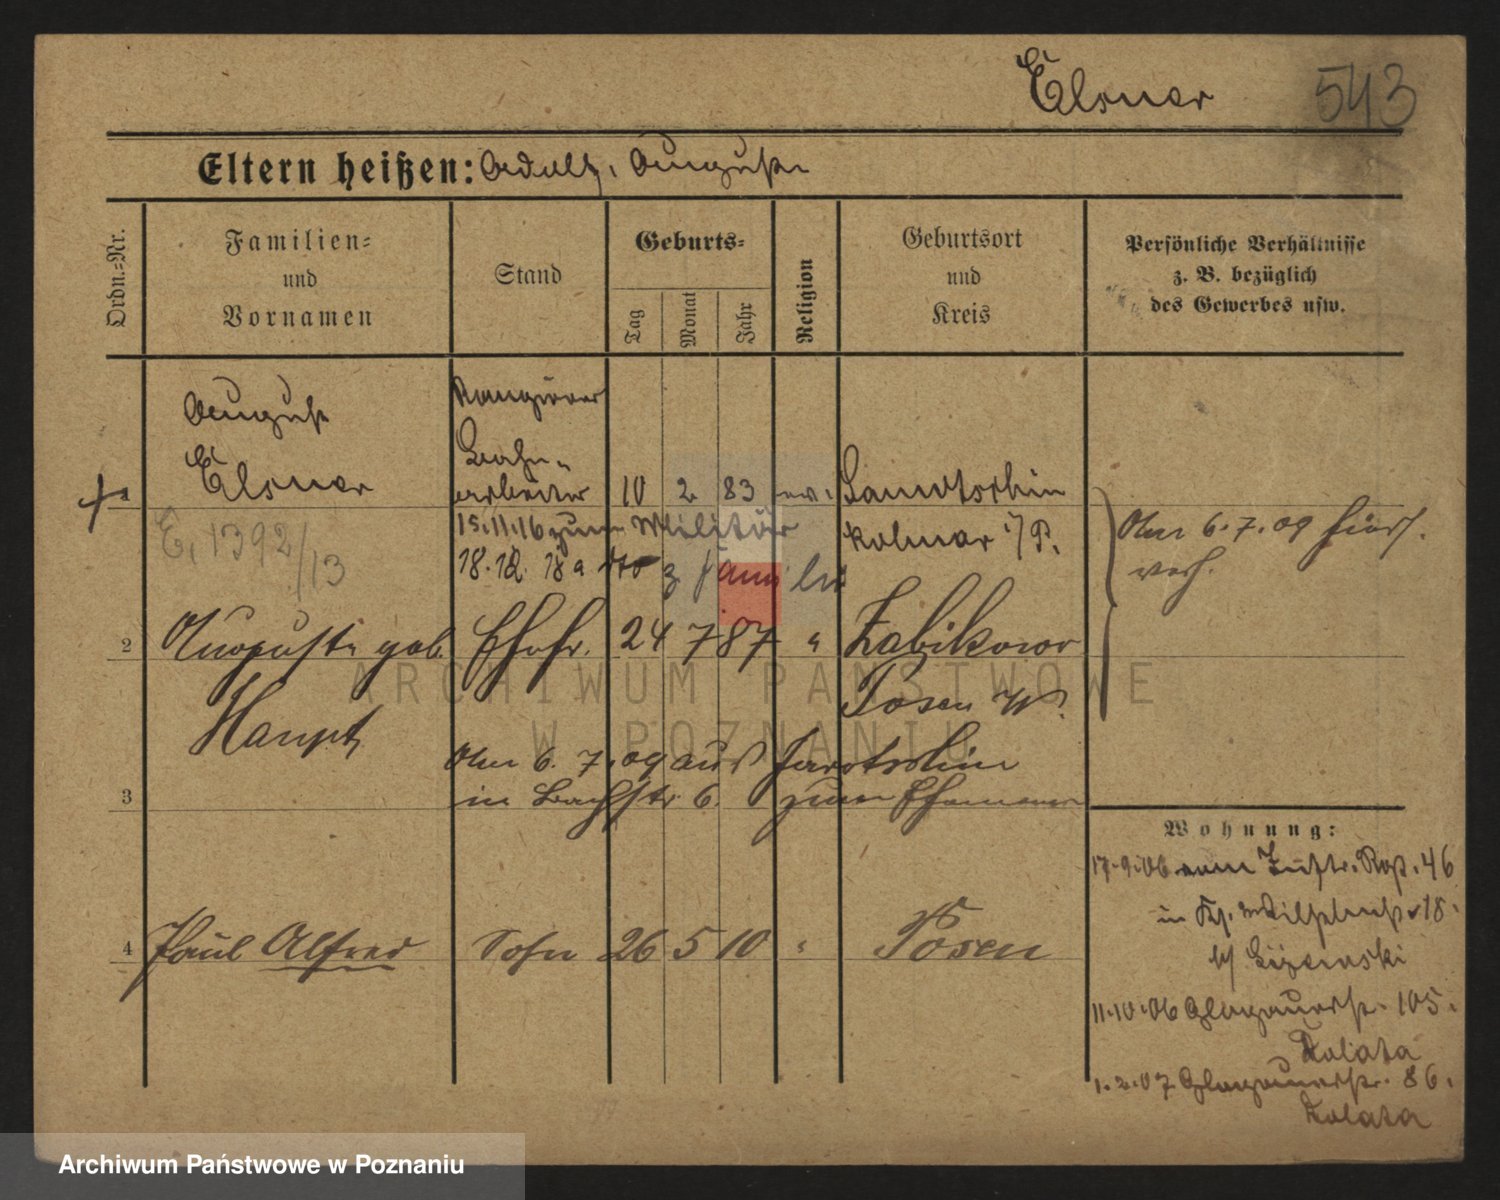 Elsner 543
Eltern heißen: Adolf, Auguste
Ordn.-Nr.
Familien-
und
Vornamen
Stand
Geburts-
Tag
Monat
Jahr
Religion
Geburtsort
und
Kreis
Persönliche Verhältnisse
z. B. bezüglich
des Gewerbes usw.
August
Elsner
Rangierer
Bahn-
arbeiter
1 10 2 83 ev. Samotschin
Kolmar i/P.
E. 1392/13
15.11.16 zum Militär
18.12.18 a dto z Familie
Am 6.7.09 hier
verh.
2 Auguste geb. Ehefr. 24 7 87 " Zabikowo
Haupt
Posen W.
Am 6.7.09 aus Jarotschin
3 in Bachstr. 6. zum Ehemann
4 Paul Alfred Sohn 26 5 10 " Posen
Wohnung:
17.9.06 46
in 18.
b/
11.10.06 Glogauerstr. 105.
Kolata
1.2.07 Glogauerstr. 86.
Kolata
ARCHIWUM PAŃSTWOWE
W POZNANIU
Archiwum Państwowe w Poznaniu